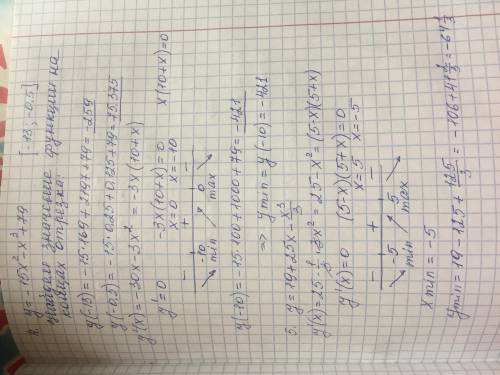 8. y = -15x² - x³ + 79 [-13; -0.5]
Найдём значение функции на
концах отрезка:
y(-13) = -15·169 + 2197 + 79 = -259
y(-0,5) = -15·0.25 + 0.125 + 79 = 75.375
y'(x) = -30x - 3x² = -3x(10+x)
y' = 0 -3x(10+x) = 0 x(10+x)=0
x = 0 x = -10
- + -
-10 0
min max
y(-10) = -15·100 + 1000 + 79 = -421
⇒ ymin = y(-10) = -421
5. y = 19 + 25x - x³/3
y'(x) = 25 - 1/3 · 3x² = 25 - x² = (5-x)(5+x)
y'(x) = 0 (5-x)(5+x) = 0
x = 5 x = -5
- + -
-5 5
min max
xmin = -5
ymin = 19 - 125 + 125/3 = -106 + 41 2/3 = -64 1/3